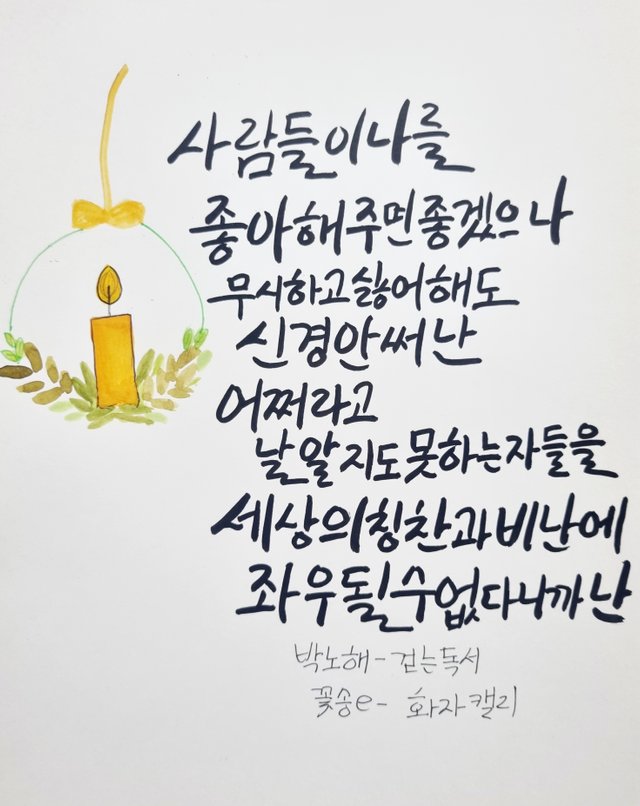 사람들이나를
좋아해주면좋겠으나
무시하고싫어해도
신경안써난
어쩌라고
날알지도못하는자들을
세상의칭찬과비난에
좌우될수없다니까난
박노해-걷는독서
꽃송e- 화자캘리